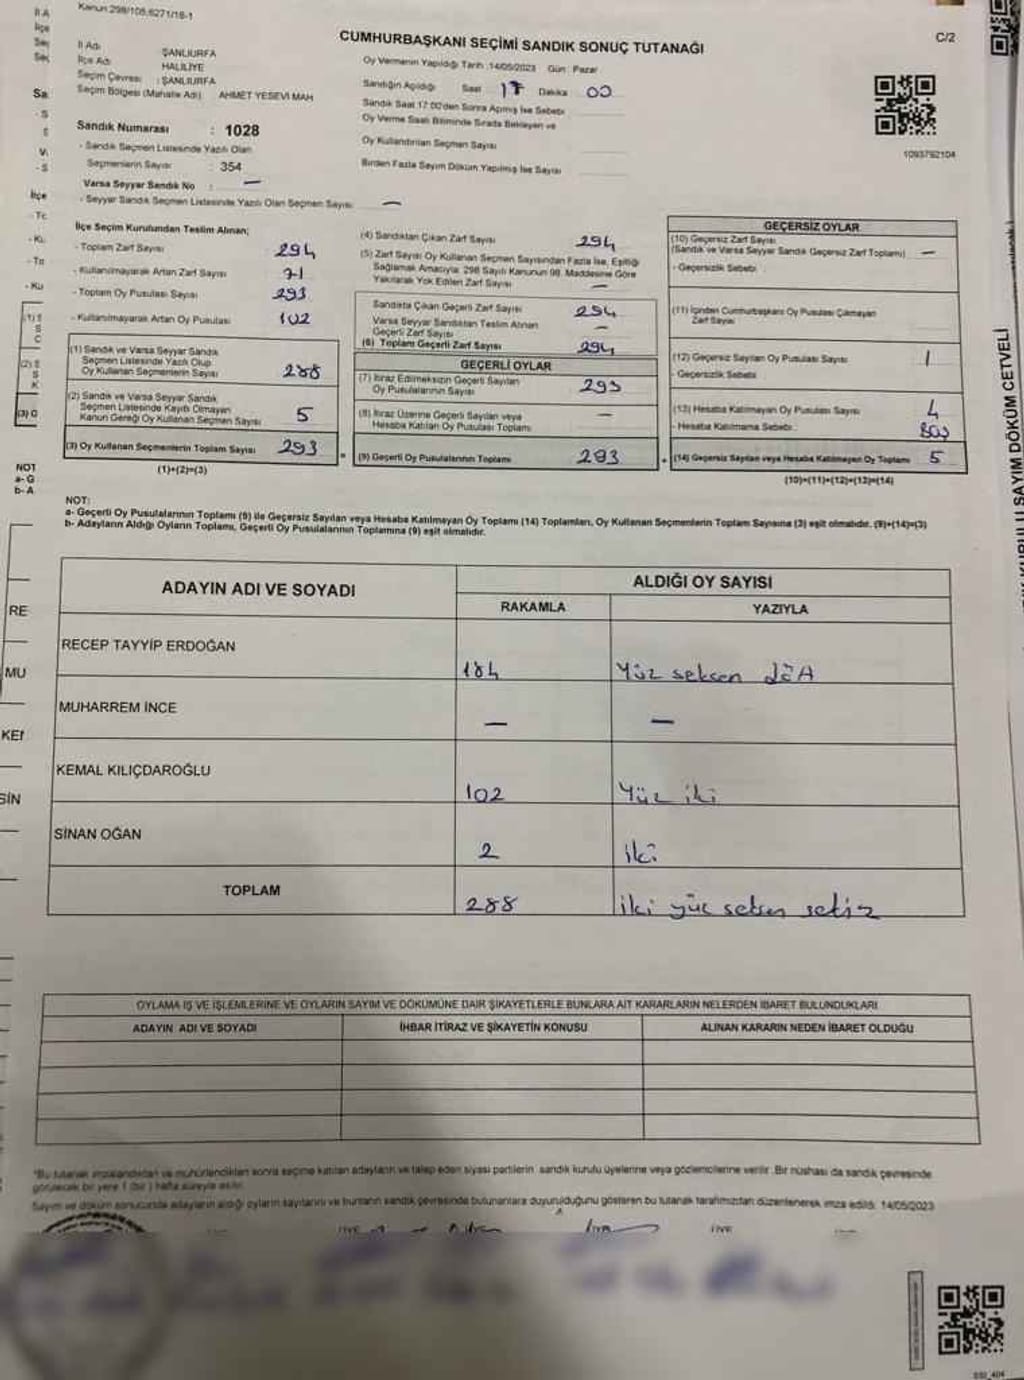 Kanun 298/105,6271/18-1
CUMHURBAŞKANI SEÇİMİ SANDIK SONUÇ TUTANAĞI
C/2
İl Adı : ŞANLIURFA
İlçe Adı : HALİLİYE
Seçim Çevresi : ŞANLIURFA
Seçim Bölgesi (Mahalle Adı) AHMET YESEVİ MAH
Sandık Numarası : 1028
- Sandık Seçmen Listesinde Yazılı Olan
Seçmenlerin Sayısı : 354
Varsa Seyyar Sandık No : —
- Seyyar Sandık Seçmen Listesinde Yazılı Olan Seçmen Sayısı —
Oy Vermenin Yapıldığı Tarih :14/05/2023 Gün : Pazar
Sandığın Açıldığı Saat 17 Dakika 00
Sandık Saat 17:00'den Sonra Açılmış İse Sebebi
Oy Verme Saati Bitiminde Sırada Bekleyen ve
Oy Kullandırılan Seçmen Sayısı
Birden Fazla Sayım Döküm Yapılmış İse Sayısı
1093792104
İlçe Seçim Kurulundan Teslim Alınan;
- Toplam Zarf Sayısı 294
- Kullanılmayarak Artan Zarf Sayısı 71
- Toplam Oy Pusulası Sayısı 293
- Kullanılmayarak Artan Oy Pusulası 102
(1) Sandık ve Varsa Seyyar Sandık
Seçmen Listesinde Yazılı Olup
Oy Kullanan Seçmenlerin Sayısı 288
(2) Sandık ve Varsa Seyyar Sandık
Seçmen Listesinde Kayıtlı Olmayan
Kanun Gereği Oy Kullanan Seçmen Sayısı 5
(3) Oy Kullanan Seçmenlerin Toplam Sayısı 293
(1)+(2)=(3)
(4) Sandıktan Çıkan Zarf Sayısı 294
(5) Zarf Sayısı Oy Kullanan Seçmen Sayısından Fazla İse, Eşitliği
Sağlamak Amacıyla, 298 Sayılı Kanunun 98. Maddesine Göre
Yakılarak Yok Edilen Zarf Sayısı —
Sandıkta Çıkan Geçerli Zarf Sayısı 294
Varsa Seyyar Sandıktan Teslim Alınan
Geçerli Zarf Sayısı —
(6) Toplam Geçerli Zarf Sayısı 294
GEÇERLİ OYLAR
(7) İtiraz Edilmeksizin Geçerli Sayılan
Oy Pusulalarının Sayısı 293
(8) İtiraz Üzerine Geçerli Sayılan veya
Hesaba Katılan Oy Pusulası Toplamı —
(9) Geçerli Oy Pusulalarının Toplamı 293
GEÇERSİZ OYLAR
(10) Geçersiz Zarf Sayısı
(Sandık ve Varsa Seyyar Sandık Geçersiz Zarf Toplamı) —
- Geçersizlik Sebebi :
(11) İçinden Cumhurbaşkanı Oy Pusulası Çıkmayan
Zarf Sayısı
(12) Geçersiz Sayılan Oy Pusulası Sayısı 1
- Geçersizlik Sebebi
(13) Hesaba Katılmayan Oy Pusulası Sayısı 4
- Hesaba Katılmama Sebebi : Boş
(14) Geçersiz Sayılan veya Hesaba Katılmayan Oy Toplamı 5
(10)+(11)+(12)+(13)=(14)
NOT:
a- Geçerli Oy Pusulalarının Toplamı (9) ile Geçersiz Sayılan veya Hesaba Katılmayan Oy Toplamı (14) Toplamları, Oy Kullanan Seçmenlerin Toplam Sayısına (3) eşit olmalıdır. (9)+(14)=(3)
b- Adayların Aldığı Oyların Toplamı, Geçerli Oy Pusulalarının Toplamına (9) eşit olmalıdır.
ADAYIN ADI VE SOYADI ALDIĞI OY SAYISI
RAKAMLA YAZIYLA
RECEP TAYYİP ERDOĞAN 184 Yüz seksen dört
MUHARREM İNCE — —
KEMAL KILIÇDAROĞLU 102 Yüz iki
SİNAN OĞAN 2 iki
TOPLAM 288 iki yüz seksen sekiz
OYLAMA İŞ VE İŞLEMLERİNE VE OYLARIN SAYIM VE DÖKÜMÜNE DAİR ŞİKAYETLERLE BUNLARA AİT KARARLARIN NELERDEN İBARET BULUNDUKLARI
ADAYIN ADI VE SOYADI İHBAR İTİRAZ VE ŞİKAYETİN KONUSU ALINAN KARARIN NEDEN İBARET OLDUĞU
*Bu tutanak imzalandıktan ve mühürlendikten sonra seçime katılan adayların ve talep eden siyasi partilerin sandık kurulu üyelerine veya gözlemcilerine verilir. Bir nüshası da sandık çevresinde
görülecek bir yere 1 (bir) hafta süreyle asılır.
Sayım ve döküm sonucunda adayların aldığı oyların sayılarını ve bunların sandık çevresinde bulunanlara duyurulduğunu gösteren bu tutanak tarafımızdan düzenlenerek imza edildi. 14/05/2023
SAYIM DÖKÜM CETVELİ